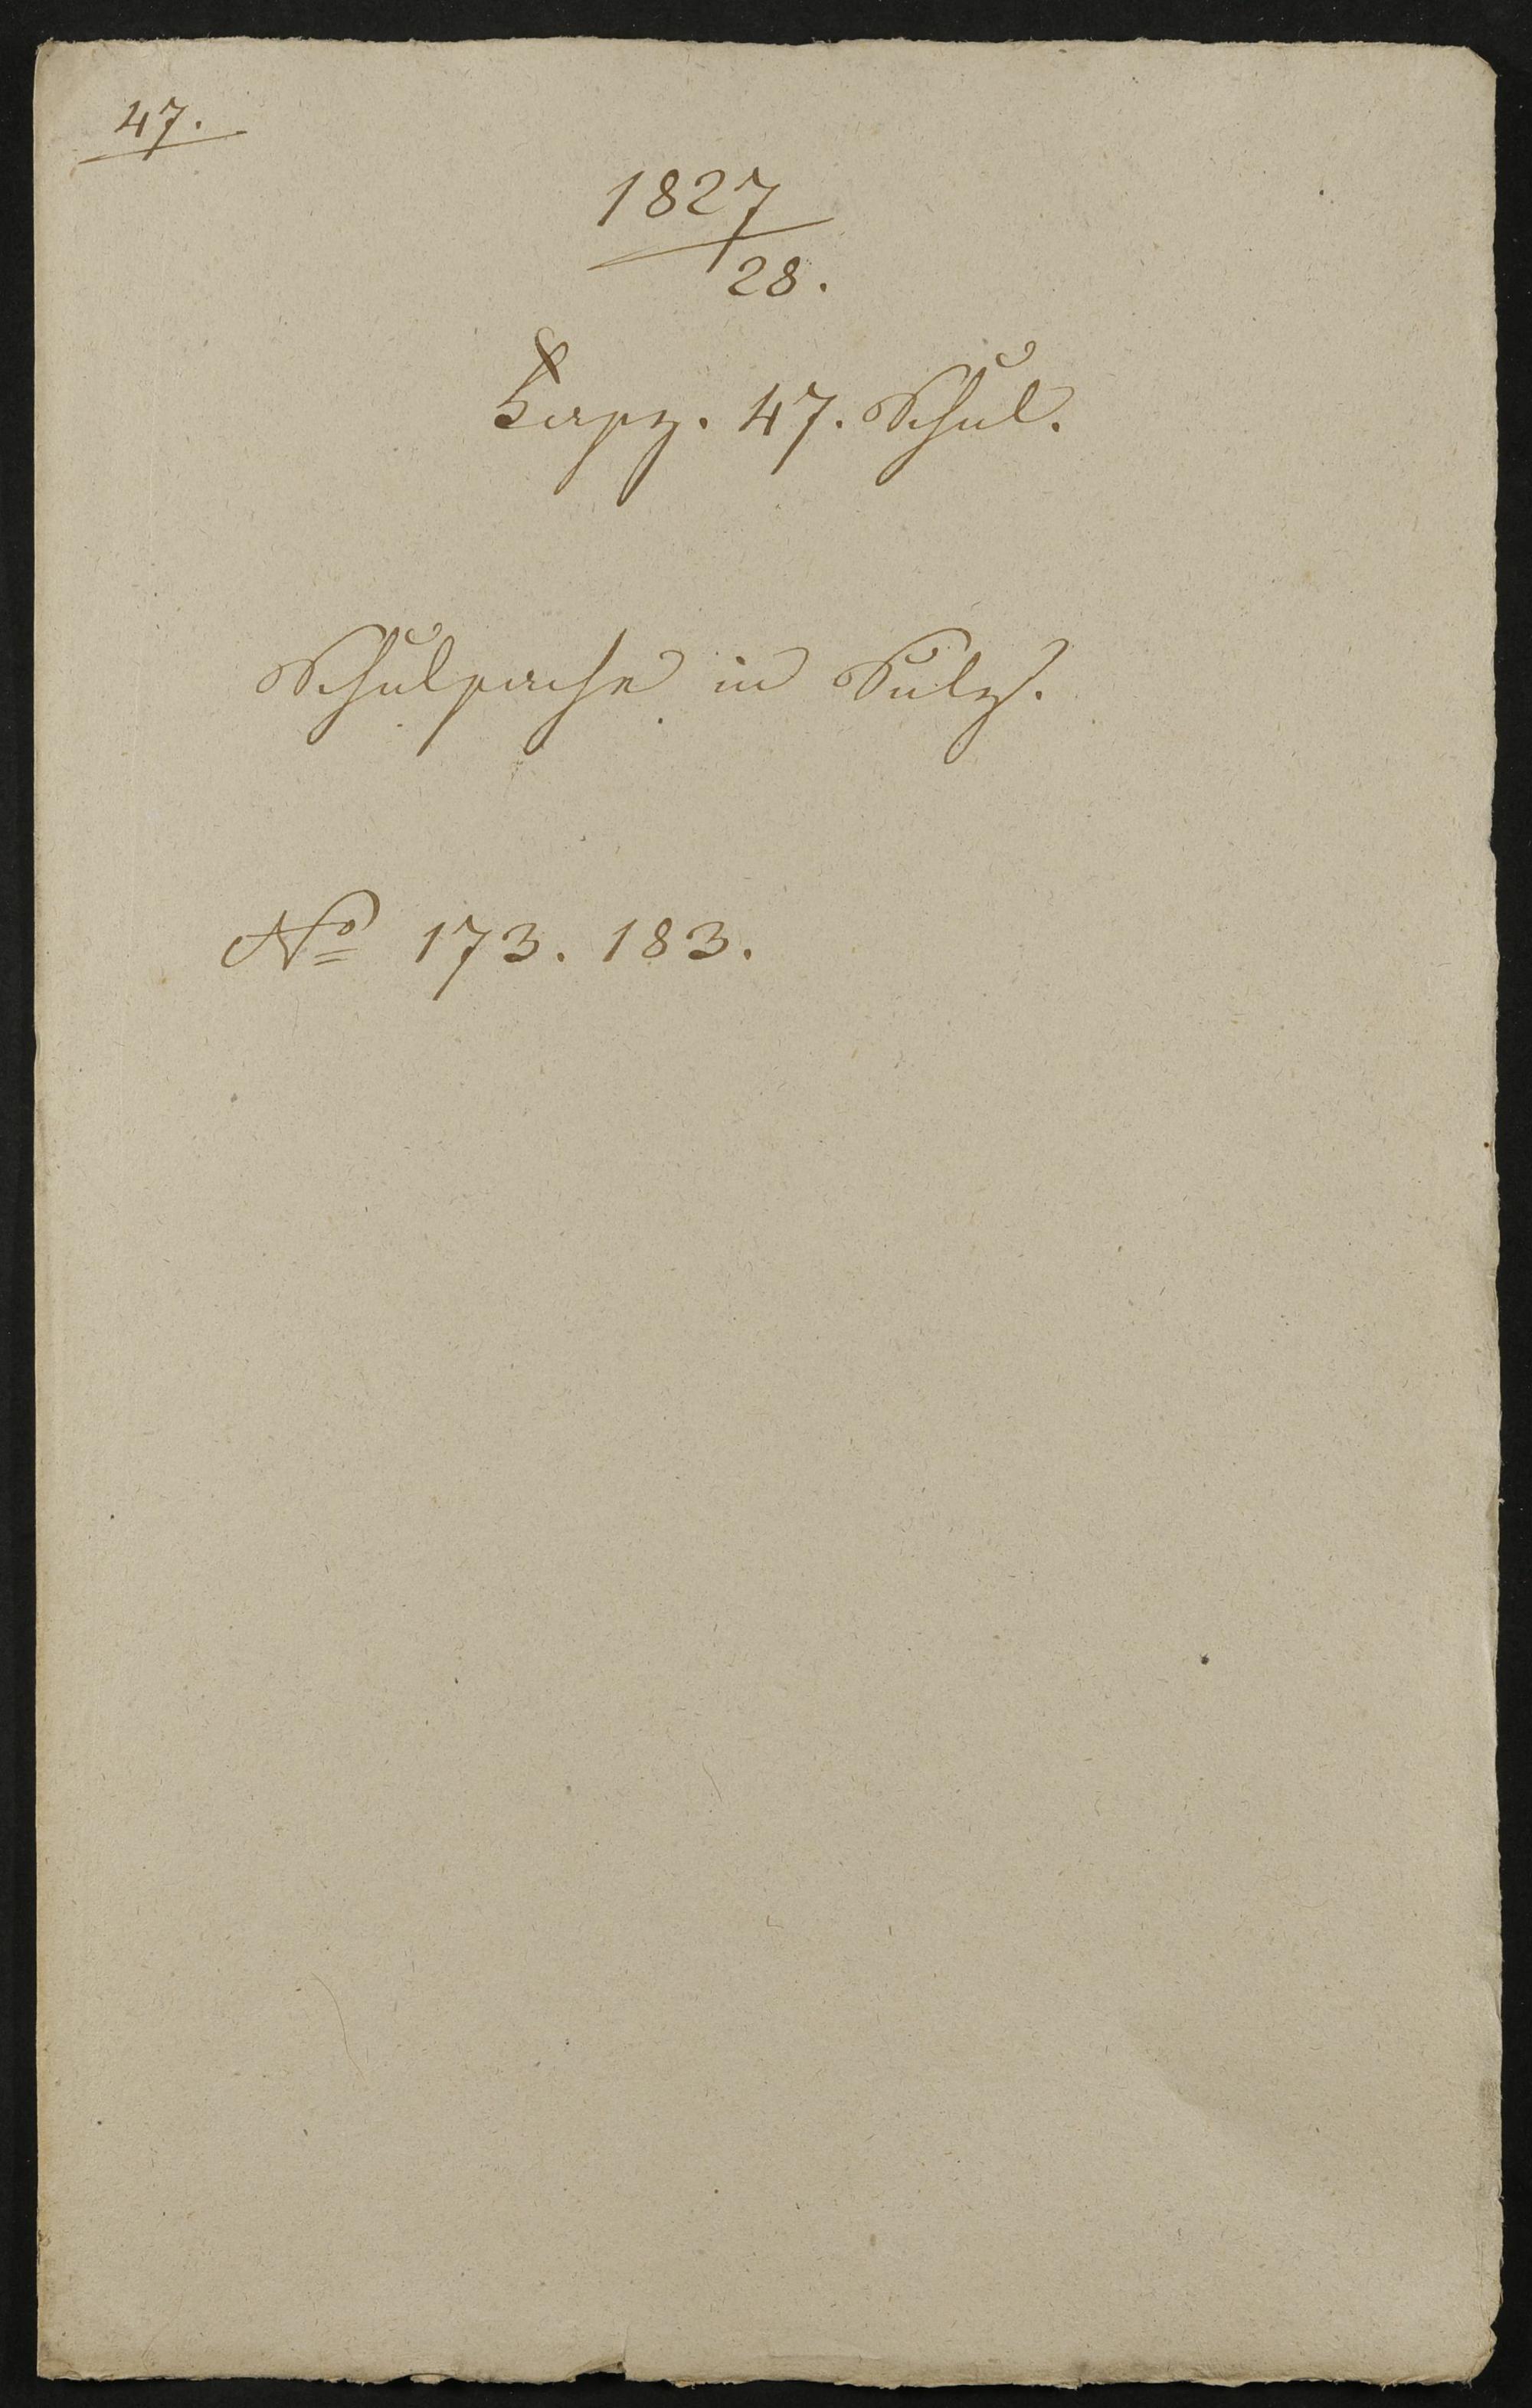 47.
1827
28.
Fasz. 47. Schul.
Schulsache in Sulz.
No 173. 183.